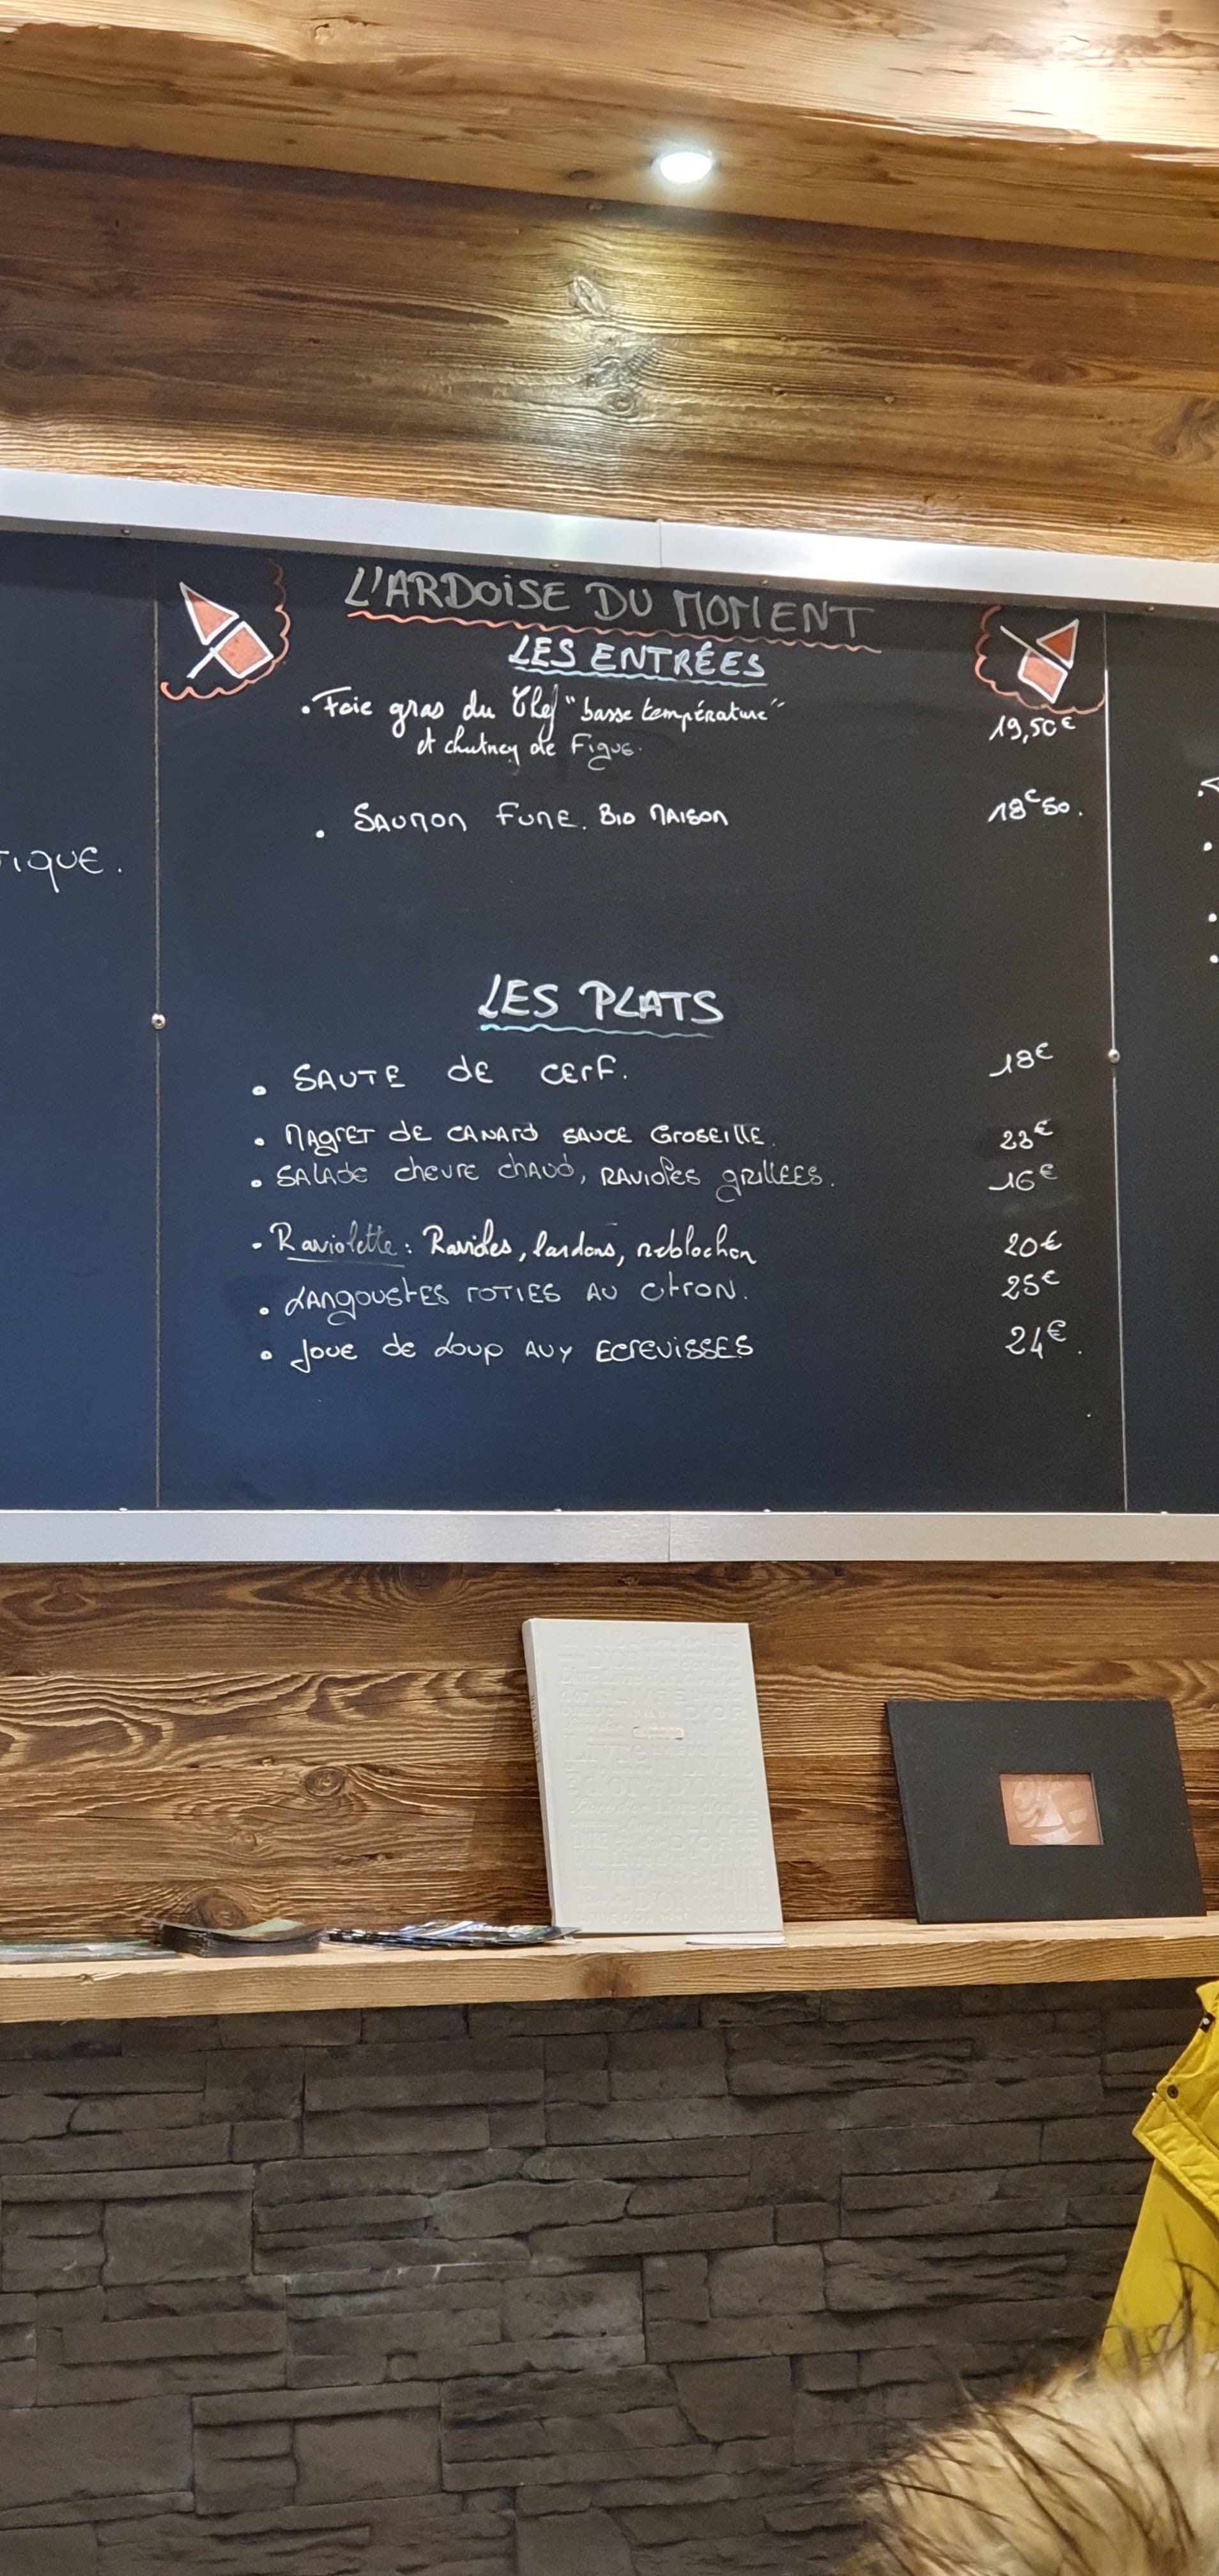 L'ARDOISE DU MOMENT
LES ENTRÉES
• Foie gras du Chef "basse température" 19,50€
et chutney de Figue.
• SAUMON FUME. BIO MAISON 18€50.
TIQUE.
LES PLATS
• SAUTE de CERF. 18€
• MAGRET de CANARD SAUCE GROSEILLE. 23€
• SALADE chEVRE chAUD, RAVIOLES GRILLEES. 16€
- Raviolette : Ravioles, lardons, reblochon 20€
• LANGOUSTES ROTIES AU CITRON. 25€
• JOUE de LOUP AUX ECREVISSES 24€.